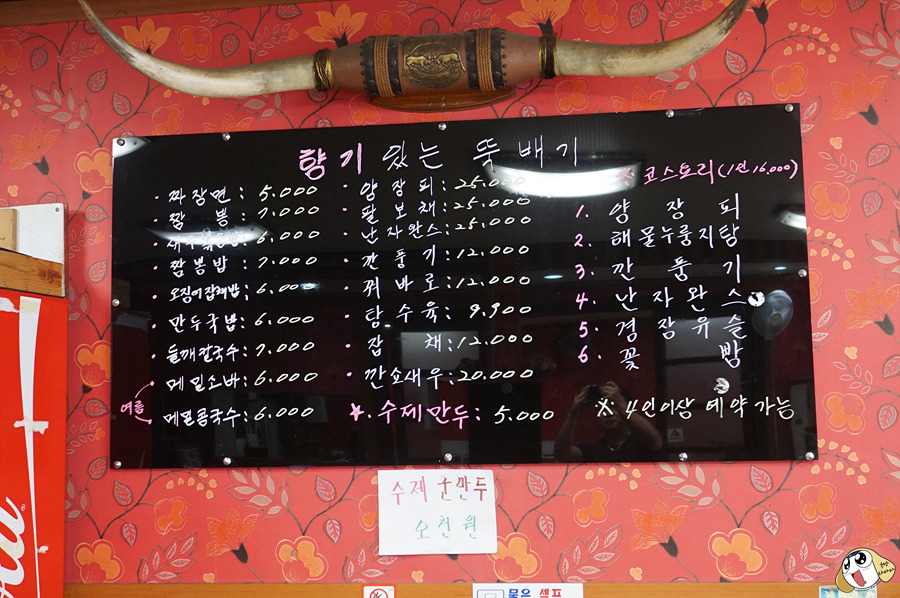 향기 있는 뚝배기
· 짜장면: 5.000
· 짬뽕: 7.000
6.000
· 짬뽕밥: 7.000
· 오징어잡채밥: 6.000
· 만두국밥: 6.000
· 들깨칼국수: 7.000
여름
· 메밀소바: 6.000
메밀콩국수: 6.000
· 양장피: 25.000
· 팔보채: 25.000
· 난자완스: 25.000
· 깐풍기: 12.000
· 꿔바로: 12.000
· 탕수육: 9.900
· 잡채: 12.000
· 깐쇼새우: 20.000
★. 수제만두: 5.000
코스토리(1인 16.000)
1. 양장피
2. 해물누룽지탕
3. 깐풍기
4. 난자완스
5. 경장유슬
6. 꽃빵
※ 4인이상 예약 가능
수제 군만두
오천원
물은 셀프